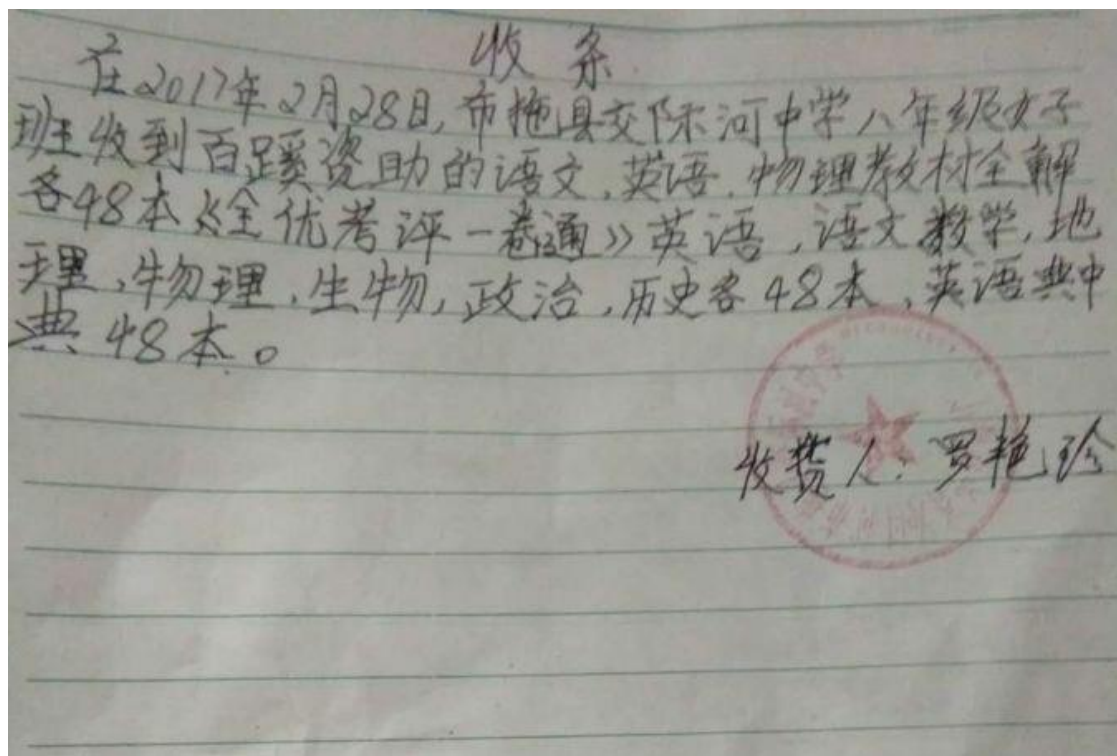 收条
在2017年2月28日,布拖县交际河中学八年级女子
班收到百蹊资助的语文,英语,物理教材全解
各48本《全优考评一卷通》英语,语文数学,地
理,物理,生物,政治,历史各48本,英语典中
典48本。
收货人:罗艳珍